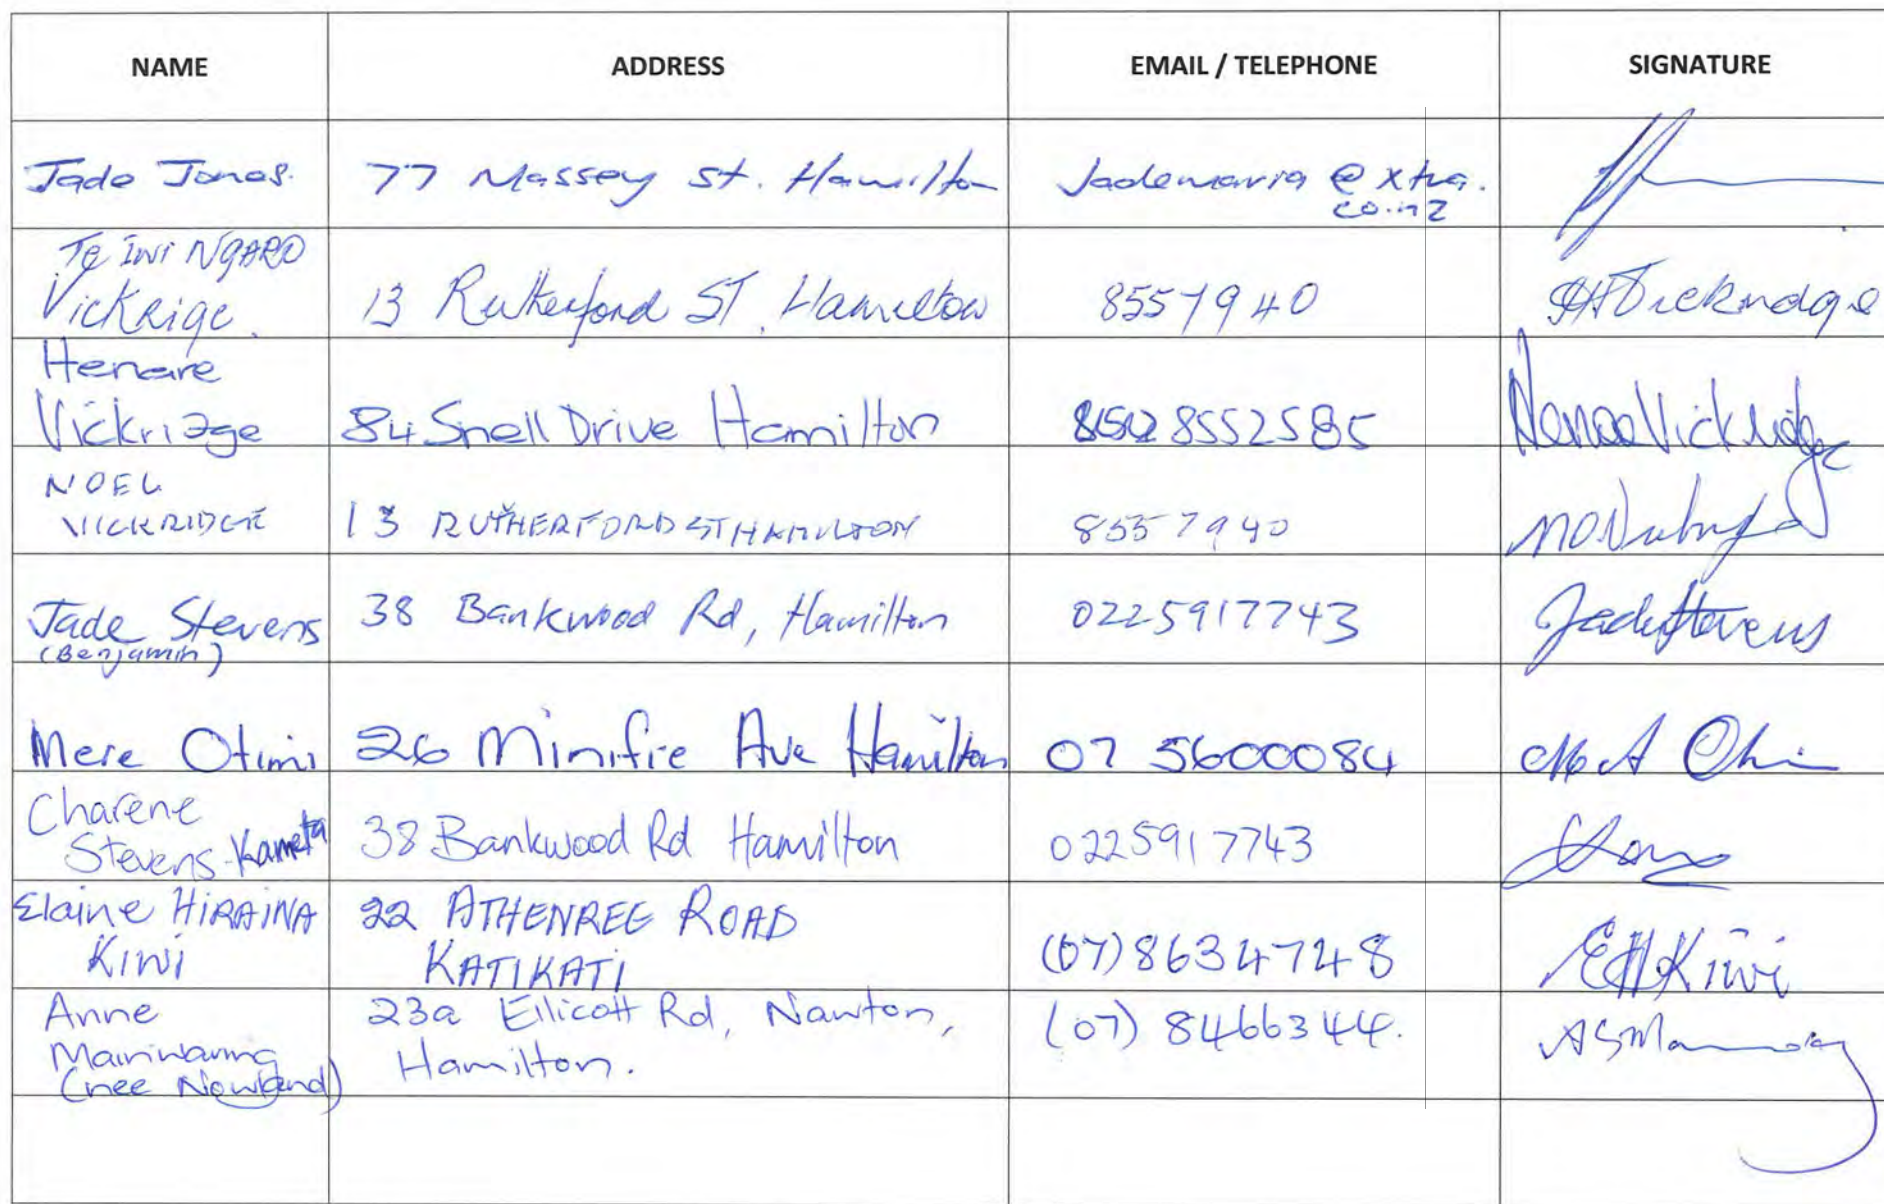 NAME ADDRESS EMAIL / TELEPHONE SIGNATURE
Jade Jones. 77 Massey St. Hamilton Jademaria @ xtra.
co.nz
TE IWI NGARO
Vickrige. 13 Rutherford ST, Hamilton 8557940
Henare
Vickridge 84 Snell Drive Hamilton 8552585 Henare Vickridge
NOEL
VICKRIDGE 13 RUTHERFORD ST HAMILTON 8557940
Jade Stevens 38 Bankwood Rd, Hamilton 0225917743 Jade Stevens
(Benjamin)
Mere Otimi 26 Minifie Ave Hamilton 07 5600084
Charene
Stevens-Kameta 38 Bankwood Rd Hamilton 0225917743
Elaine HIRAINA 22 ATHENREE ROAD
KIWI KATIKATI (07) 8634748 EH Kiwi
Anne 23a Ellicott Rd, Nawton, (07) 8466344.
Mainwaring Hamilton.
(nee Newland)